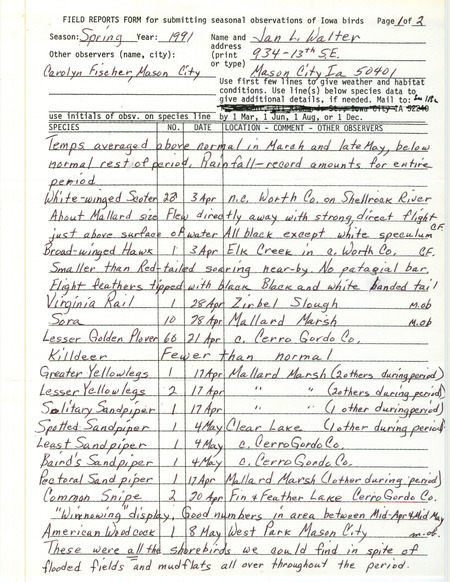 FIELD REPORTS FORM for submitting seasonal observations of Iowa birds Page 1 of 2
Season: Spring Year: 1991 Name and Jan L. Walter
Other observers (name, city): address 934-13th SE.
(print
Carolyn Fischer, Mason City or type) Mason City Ia 50401
Use first few lines for weather and habitat
conditions. Use line(s) below species data to
give additional details, if needed. Mail to:
IA 52240
use initials of obsv. on species line by 1 Mar, 1 Jun, 1 Aug, or 1 Dec.
SPECIES NO. DATE LOCATION - COMMENT - OTHER OBSERVERS
Temps averaged above normal in March and late May, below
normal rest of period. Rainfall-record amounts for entire
period
White-winged Scoter 28 3 Apr n.c. Worth Co. on Shellrock River
About Mallard size Flew directly away with strong, direct flight
just above surface of water All black except white speculum C.F.
Broad-winged Hawk 1 3 Apr Elk Creek in c. Worth Co. C.F.
Smaller than Red-tailed soaring near-by. No patagial bar.
Flight feathers tipped with black Black and white banded tail
Virginia Rail 1 28 Apr Zirbel Slough m.ob
Sora 10 28 Apr Mallard Marsh m.ob
Lesser Golden Plover 60 21 Apr c. Cerro Gordo Co.
Killdeer Fewer than normal
Greater Yellowlegs 1 17 Apr Mallard Marsh (2 others during period)
Lesser Yellowlegs 2 17 Apr " " (2 others during period)
Solitary Sandpiper 1 17 Apr " " (1 other during period)
Spotted Sandpiper 1 4 May Clear Lake (1 other during period)
Least Sandpiper 1 4 May c. Cerro Gordo Co.
Baird's Sandpiper 1 4 May c. Cerro Gordo Co.
Pectoral Sandpiper 1 17 Apr Mallard Marsh (1 other during period)
Common Snipe 2 20 Apr Fin & Feather Lake Cerro Gordo Co.
"Winnowing" display. Good numbers in area between Mid-Apr & Mid-May
American Woodcock 1 8 May West Park Mason City m.ob.
These were all the shorebirds we could find in spite of
flooded fields and mudflats all over throughout the period.